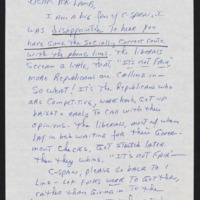 Dear Mr. Lamb,
I am a big fan of C-Span, I
was disappointed to hear you
have gone the Socially Correct route
with the phone lines. The liberals
scream a little, that "it's not fair"
more Republicans are calling in -
So what! It's the Republicans who
are competitive, work hard, get up
bright & early to call with their
opinions. The liberals, most of whom
lay in bed waiting for their Govern-
ment checks, get started later
then they whine. "it's not fair" -
C-Span, please go back to 1
line - let folks work to get there,
rather than giving in to the